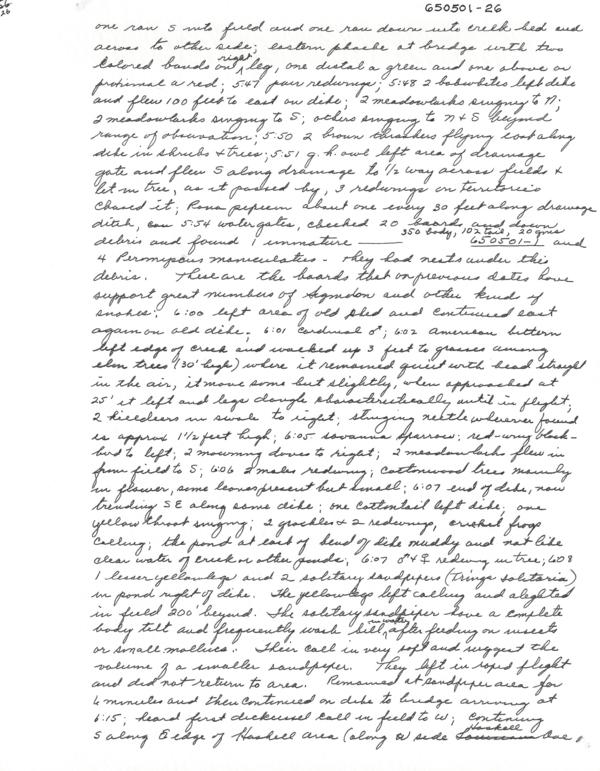 650501-26
26
one ran S into field and one ran down into creek bed and
across to other side; eastern phoebe at bridge with two
colored bands on right leg, one distal a green and one above or
proximal a red; 5:47 pair redwings; 5:48 2 bobwhites left dike
and flew 100 feet to east on dike; 2 meadowlarks singing to N;
2 meadowlarks singing to S; others singing to N & S beyond
range of observation; 5:50 2 brown thrashers flying east along
dike in shrubs & trees; 5:51 g. h. owl left area of drainage
gate and flew S along drainage to 1/2 way across fields &
lit in tree, as it passed by, 3 redwings on territories
chased it; Rana pipiens about one every 30 feet along drainage
ditch, 5:54 water gates, checked 20 boards and down
debris and found 1 immature ——— 350 body, 102 tail, 20 gms 650501-1 and
4 Peromyscus maniculatus - they had nests under this
debris. These are the boards that on previous dates have
support great numbers of Sigmodon and other kind of
snakes; 6:00 left area of old shed and continued east
again on old dike; 6:01 cardinal ♂; 6:02 American bittern
left edge of creek and walked up 3 feet to grasses among
elm trees (30' high) where it remained quiet with head straight
in the air, it move some but slightly, when approached at
25' it left and legs dangle characteristically until in flight;
2 killdeers in swale to right; stinging nettle wherever found
is approx 1 1/2 feet high; 6:05 savanna sparrow; red-wing black-
bird to left; 2 mourning doves to right; 2 meadowlarks flew in
from field to S; 6:06 2 males redwing; cottonwood trees mainly
in flower, some leaves present but small; 6:07 end of dike, now
trending SE along same dike; one cottontail left dike; one
yellowthroat singing; 2 grackles & 2 redwings, cricket frogs
calling; the pond at east of bend of dike muddy and not like
clear water of creek or other ponds; 6:07 ♂ & ♀ redwing in tree; 608
1 lesser yellowlegs and 2 solitary sandpipers (Tringa solitaria)
in pond right of dike. The yellowlegs left calling and alighted
in field 200' beyond. The solitary sandpiper have a complete
body tilt and frequently wash bill in water after feeding on insects
or small molluscs. Their call in very soft and suggest the
volume of a smaller sandpiper. They left in rapid flight
and did not return to area. Remained at sandpiper area for
6 minutes and then continued on dike to bridge arriving at
6:15; heard first dickcissel call in field to W; continuing
S along E edge of Haskell area (along W side Haskell Ave.